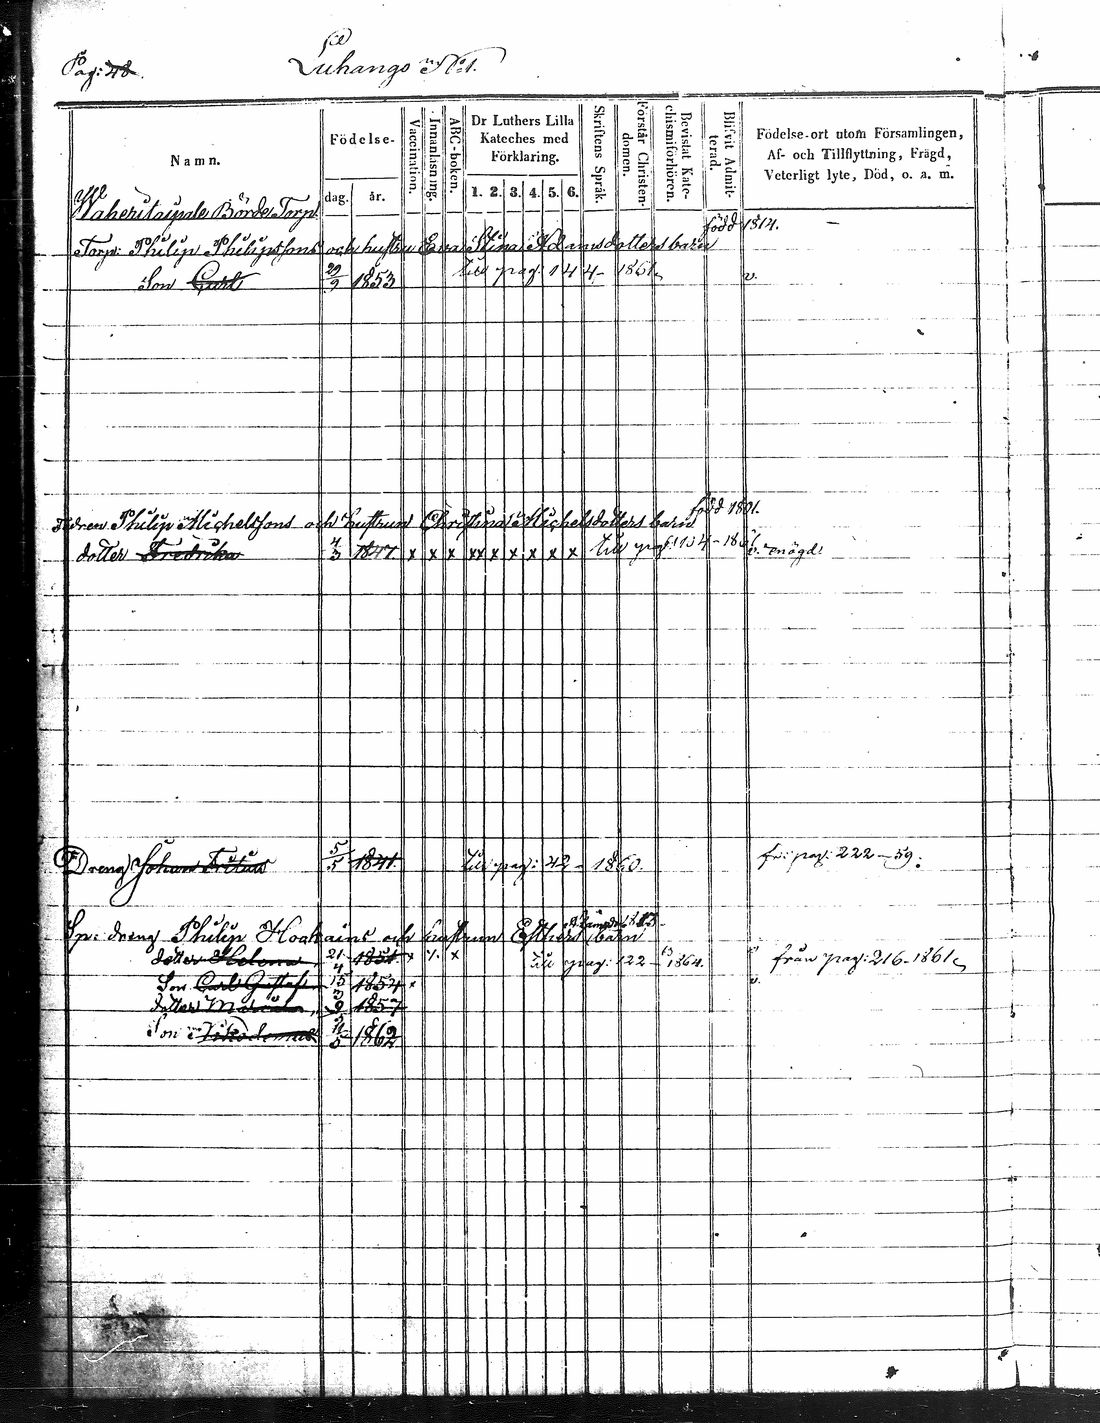 Pag: 48.
Luhango No 1.
Namn.
Födelse-
dag. år.
Vaccination.
Innanläsning.
ABC-boken.
Dr Luthers Lilla Kateches med Förklaring.
1. 2. 3. 4. 5. 6.
Skriftens Språk.
Förstår Christendomen.
Bevistat Katechismiförhören.
Blifvit Admitterad.
Födelse-ort utom Församlingen,
Af- och Tillflyttning, Frägd,
Veterligt lyte, Död, o. a. m.
Börde Torp.
född 1814.
Torp: Philip Philipssons och hustru Eva Stina Adamsdotters barn
Son Carl 29/9 1853 till pag: 144 - 1861 v.
född 1801.
Philip Michelssons och hustrun Christina Michelsdotters barn
dotter Fredrika 4/3 1847 x x x xx x x x x x till pag: - 1861
Dreng Johan 5/5 1841. till pag: 42 - 1860. fr: pag: 222 - 59.
Sp: dreng Philip och hustrun Esthers barn
dotter Helena 21/4 1851 x x till pag: 122 - 1864. från pag: 216 - 1861
Son Carl Gustaf 15/3 1854 x v.
dotter 1857
Son 11/5 1862